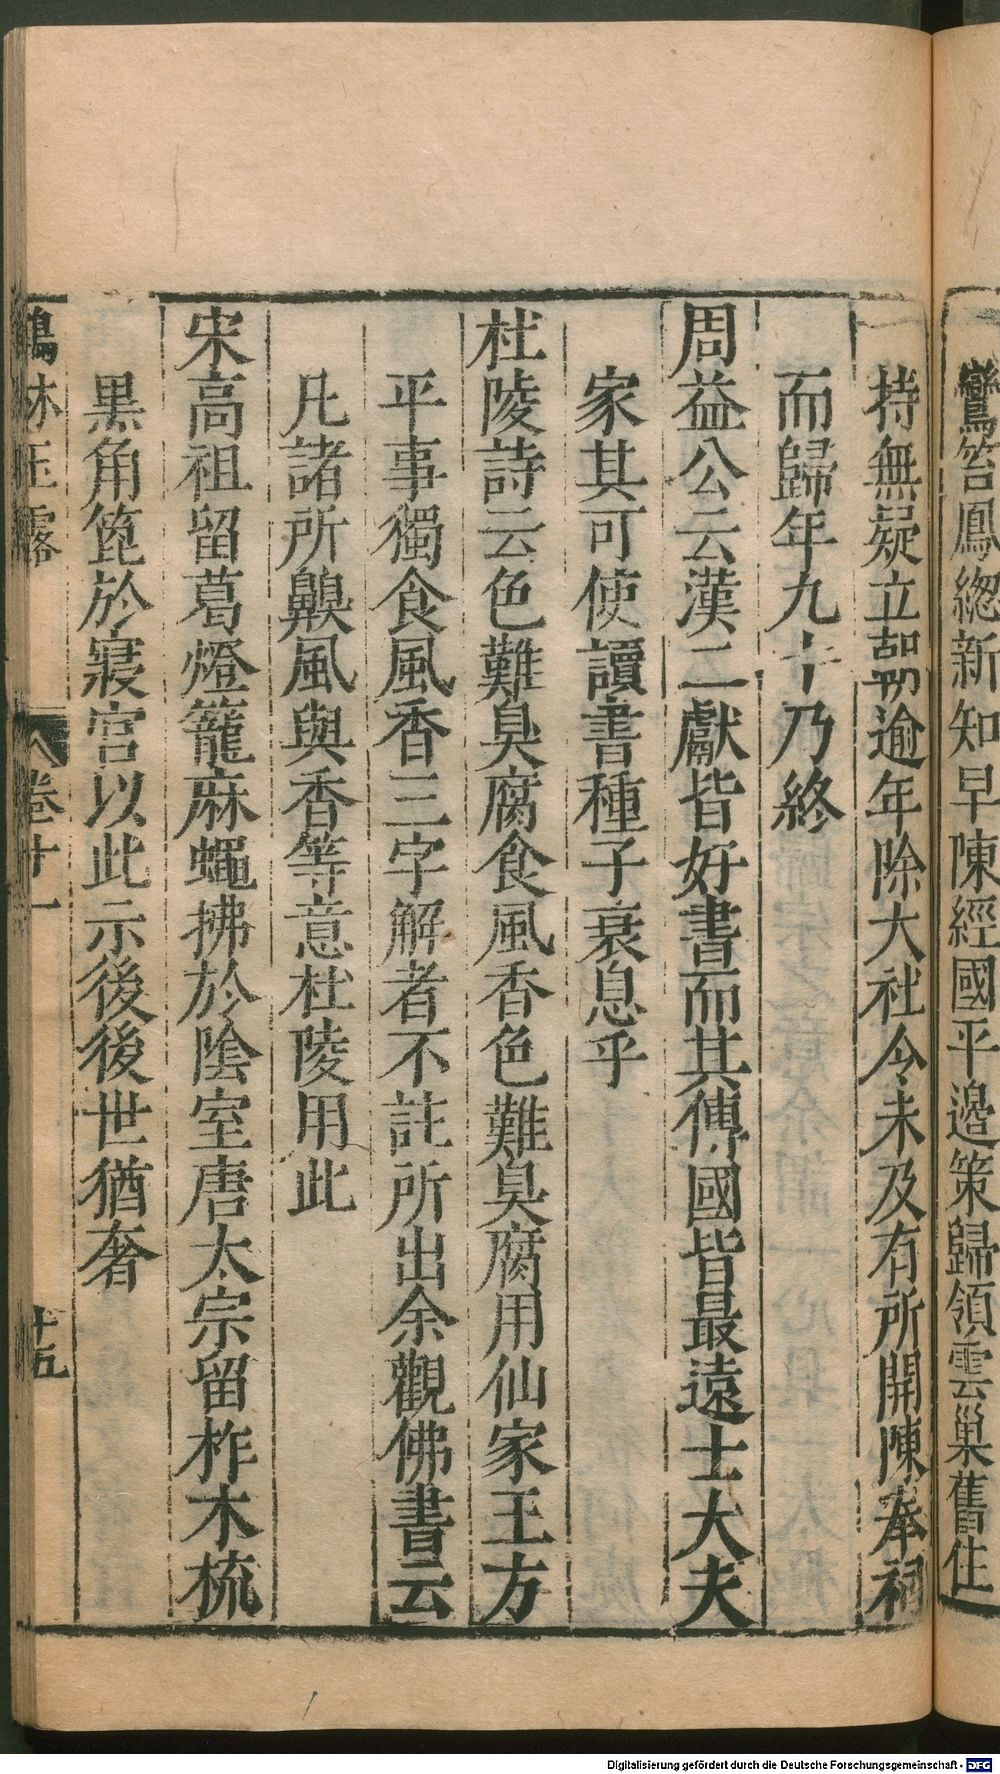 鸞笞鳳緫新知早陳經國平邊策歸領雲巢舊住
持無疑立朝逾年除大社令未及有所開陳奉祠
而歸年九十乃終
周益公云漢二獻皆好書而其傳國皆最遠士大夫
家其可使讀書種子衰息乎
杜陵詩云色難臭腐食風香色難臭腐用仙家王方
平事獨食風香三字解者不註所出余觀佛書云
凡諸所齅風與香等意杜陵用此
宋高祖留葛燈籠麻蠅拂於陰室唐太宗留柞木梳
黑角篦於寢宮以此示後後世猶奢
鶴林玉露
卷廿一
十五
Digitalisierung gefördert durch die Deutsche Forschungsgemeinschaft - DFG